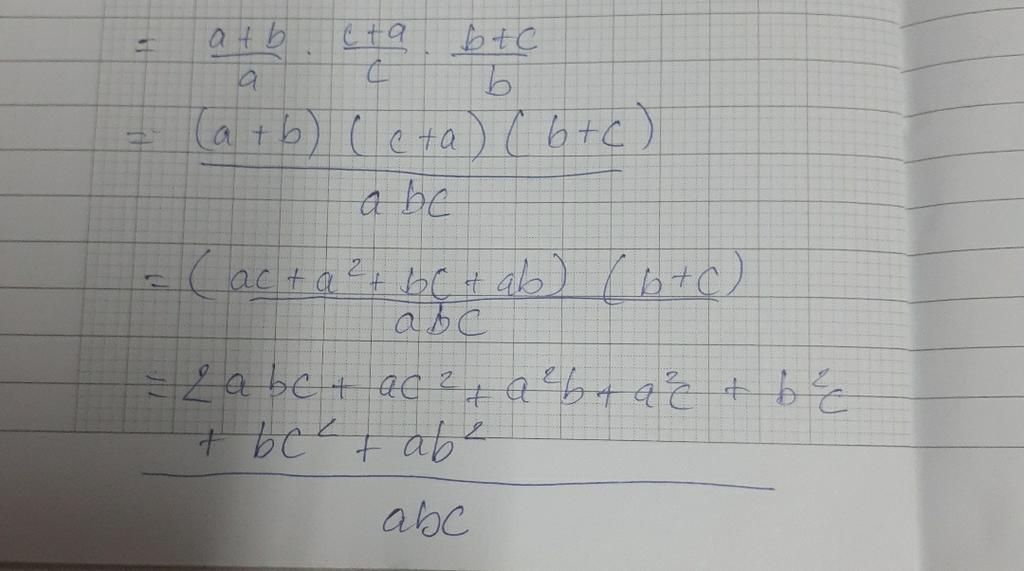 = a+b/a . c+a/c . b+c/b
= (a+b) (c+a) (b+c)
abc
= (ac + a² + bc + ab) (b+c)
abc
= 2abc + ac² + a²b + a²c + b²c
+ bc² + ab²
abc